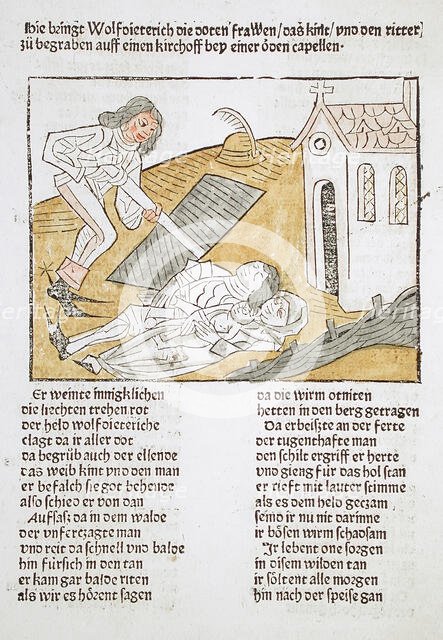 Hie bringt Wolfdieterich die doten frawen/das kint/vnd den ritter/
zů begraben auff einen kirchoff bey einer öden capellen.
Er weinte innigklichen
die liechten trehen rot
der held wolfdieteriche
clagt da ir aller dot
da begrůb auch der ellende
das weib kint vnd den man
er befalch sie got behende
also schied er von dan
Auffsaß da in dem walde
der vnferczagte man
vnd reit da schnell vnd balde
hin fürsich in den tan
er kam gar balde riten
als wir es hörent sagen
da die wirm otniten
hetten in den berg getragen
Da erbeißte an der ferte
der tugenthafte man
den schilt ergriff er herte
vnd gieng für das hol stan
er rieff mit lauter stimme
als es dem held geczam
seind ir nu nit darinne
ir bösen wirm schadsam
Ir lebent one sorgen
in disem wilden tan
ir söltent alle morgen
hin nach der speise gan